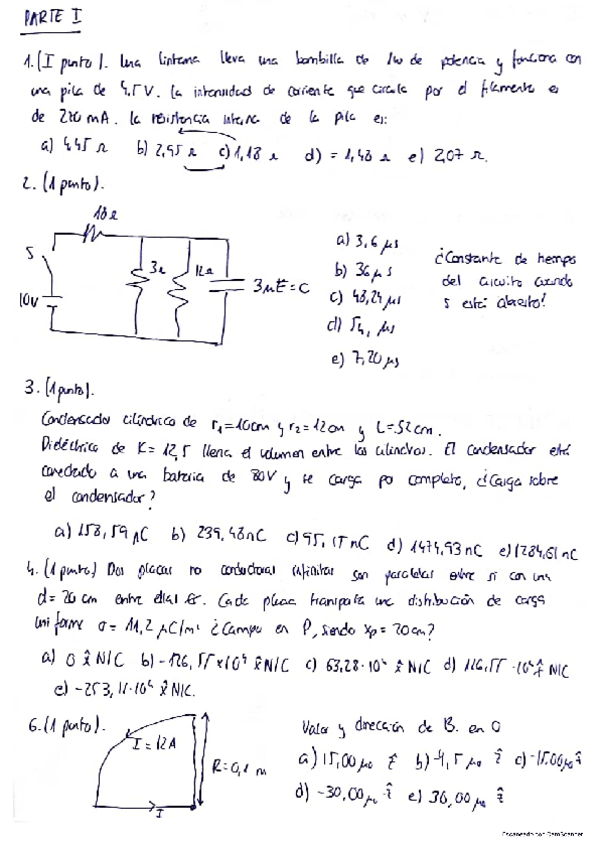 PARTE I
1. (I punto). Una linterna lleva una bombilla de 1w de potencia y funciona con
una pila de 4,5 V. La intensidad de corriente que circula por el filamento es
de 220 mA. La resistencia interna de la pila es:
a) 4,45 Ω b) 2,95 Ω c) 1,18 Ω d) = 1,48 Ω e) 2,07 Ω.
2. (1 punto).
18Ω
S
10V
3Ω
12Ω
3μF = C
a) 3,6 μs
b) 36 μs
c) 48,24 μs
d) 54, μs
e) 7,20 μs
¿Constante de tiempo
del circuito cuando
S está abierto?
3. (1 punto).
Condensador cilíndrico de r₁=10cm y r₂=12cm y L=52cm.
Dieléctrico de K=12,5 llena el volumen entre los cilindros. El condensador está
conectado a una batería de 80V y se carga por completo, ¿Carga sobre
el condensador?
a) 158,59 nC b) 239,48nC c) 95,15 nC d) 1474,93 nC e) 1284,61 nC
4. (1 punto) Dos placas no conductoras infinitas son paralelas entre sí con una
d= 20 cm entre ellas. Cada placa transporta una distribución de carga
uniforme σ= 11,2 μC/m² ¿Campo en P, siendo xp= 20cm?
a) 0 x̂ N/C b) -126,55×10⁴ x̂ N/C c) 63,28·10⁴ x̂ N/C d) 126,55·10⁴ x̂ N/C
e) -253,11·10⁴ x̂ N/C.
6. (1 punto).
I = 12A
R=0,1 m
I
Valor y dirección de B. en O
a) 15,00μ₀ ẑ b) -4,5 μ₀ ẑ c) -15,00μ₀ ẑ
d) -30,00μ₀ ẑ e) 30,00μ₀ ẑ
Escaneado con CamScanner